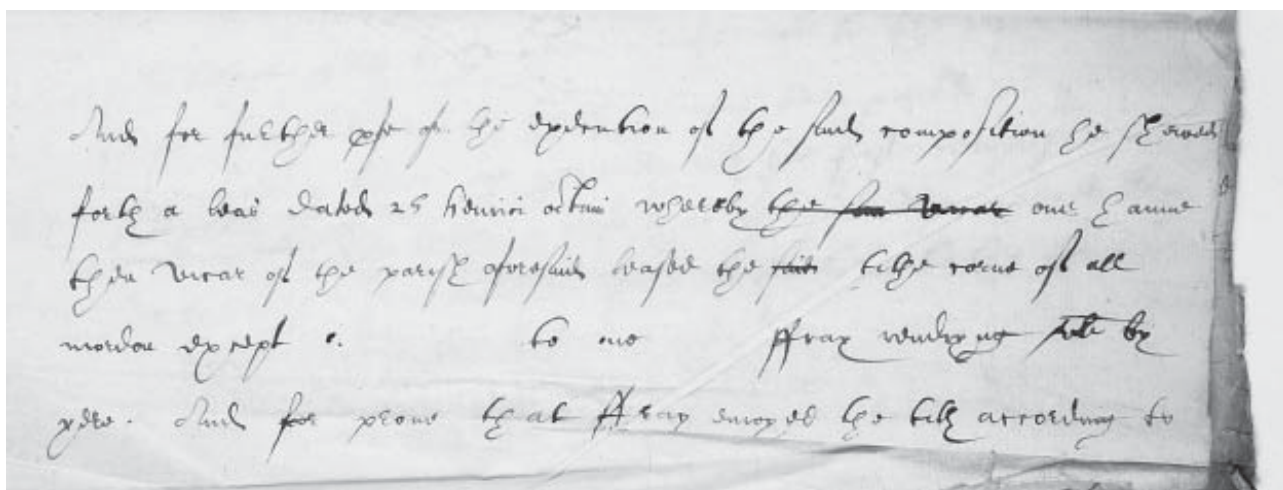 And for further pfe of the execution of the said composition he sheweth
forth a leas dated 25 henrici octavi whereby the vicar one
then vicar of the parish aforesaid leased the said tithe corne of all
mordon except to one ffray rendryng by
yere. And for prove that ffray enioyed the tith according to